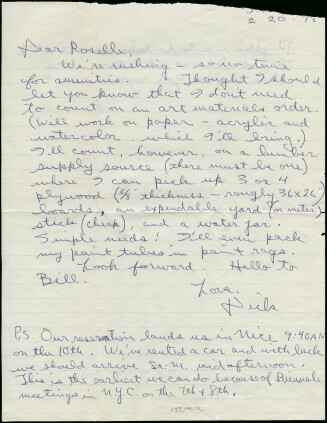 2 20
Dear Roselle,
We're rushing - so no time
for amenities. Thought I should
let you know that I don't need
to count on an art materials order.
(Will work on paper - acrylic and
watercolor which I'll bring)
I'll count, however, on a lumber
supply source (there must be one)
where I can pick up 3 or 4
plywood (3/8 thickness - roughly 36 x 26")
boards, an expendable yard (or meter)
stick (cheap), and a water jar.
Simple needs! I'll even pack
my paint tubes in paint rags.
Look forward. Hello to
Bill.
Love,
P.S. Our reservation lands us in Nice 9:40AM
on the 10th. We've rented a car and with luck
we should arrive St. M. mid afternoon.
This is the earliest we can do because of Biennale
meetings in N.Y.C. on the 7th & 8th.
over